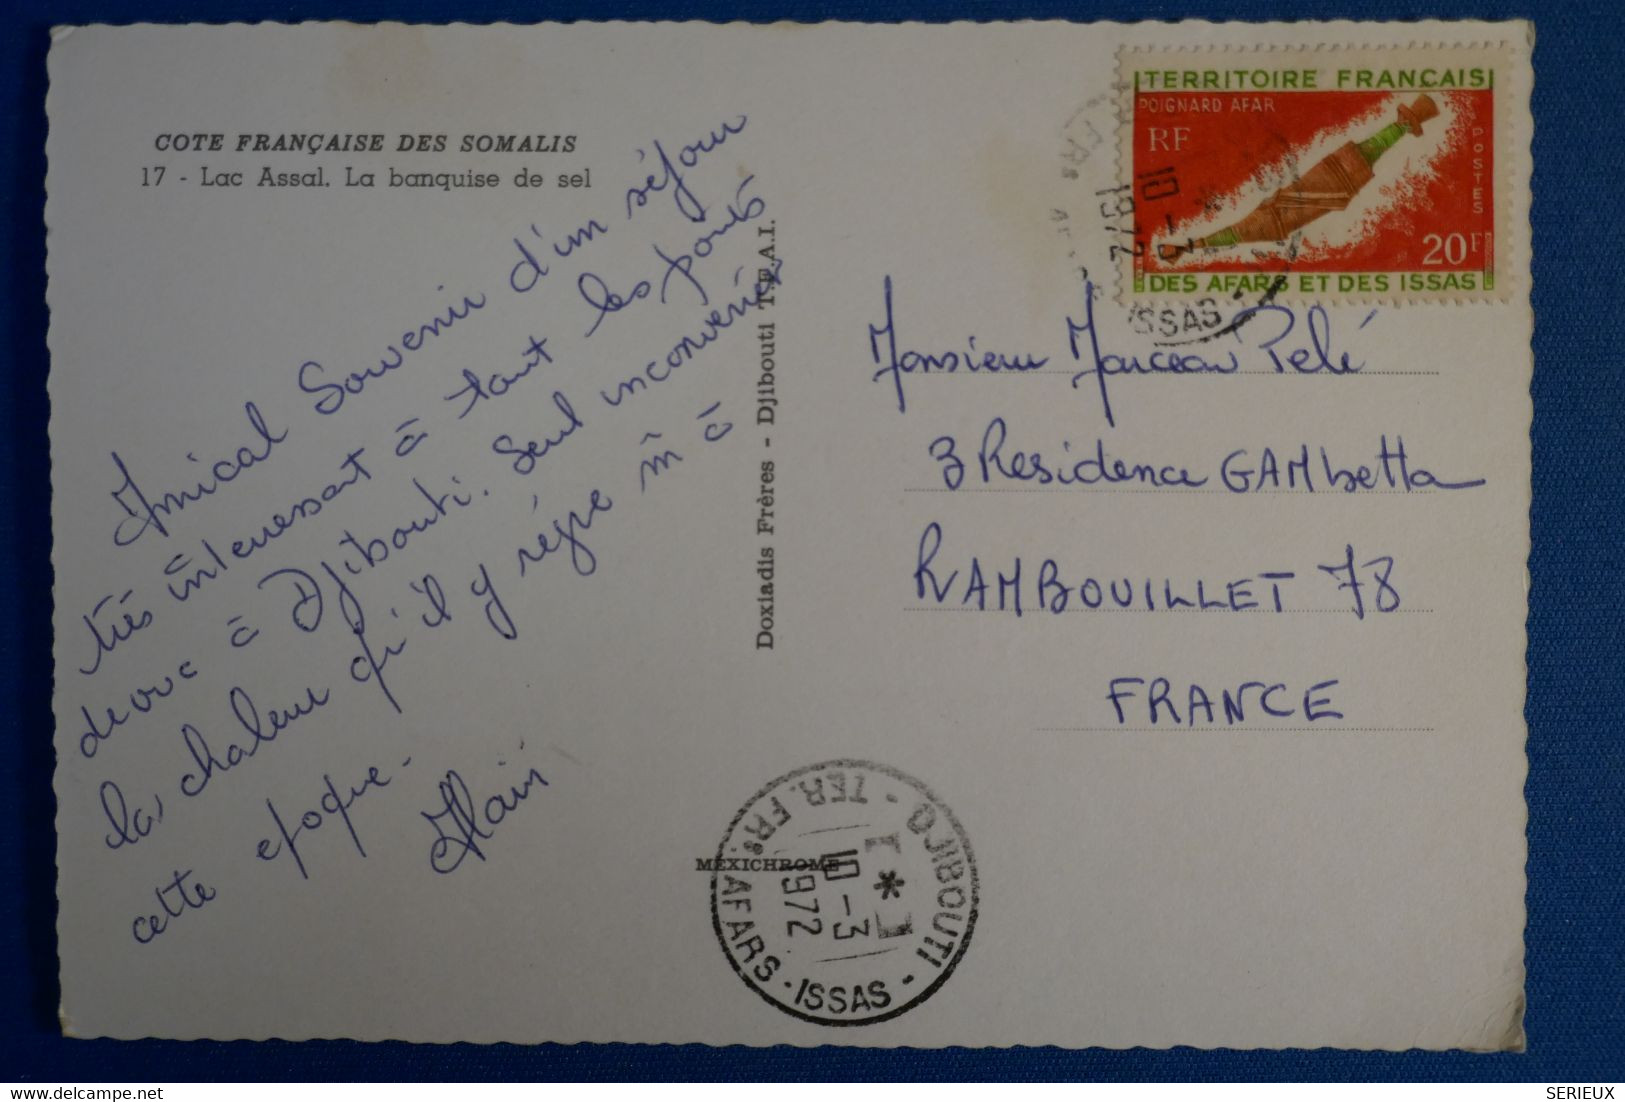 COTE FRANÇAISE DES SOMALIS
17 - Lac Assal. La banquise de sel
Amical Souvenir d'un séjour
très intéressant à tout les points
de vue à Djibouti. Seul inconvénient
la chaleur qu'il y règne m à
cette époque.
Alain
Doxiadis Frères - Djibouti T.F.A.I.
MEXICHROME
TERRITOIRE FRANÇAIS
POIGNARD AFAR
RF
POSTES
20F
DES AFARS ET DES ISSAS
10-3
1972
ISSAS
Monsieur Marceau Pelé
3 Residence GAMbetta
RAMBOUILLET 78
FRANCE
DJIBOUTI - TER. FRs. AFARS - ISSAS -
[*]
10-3
1972
SERIEUX